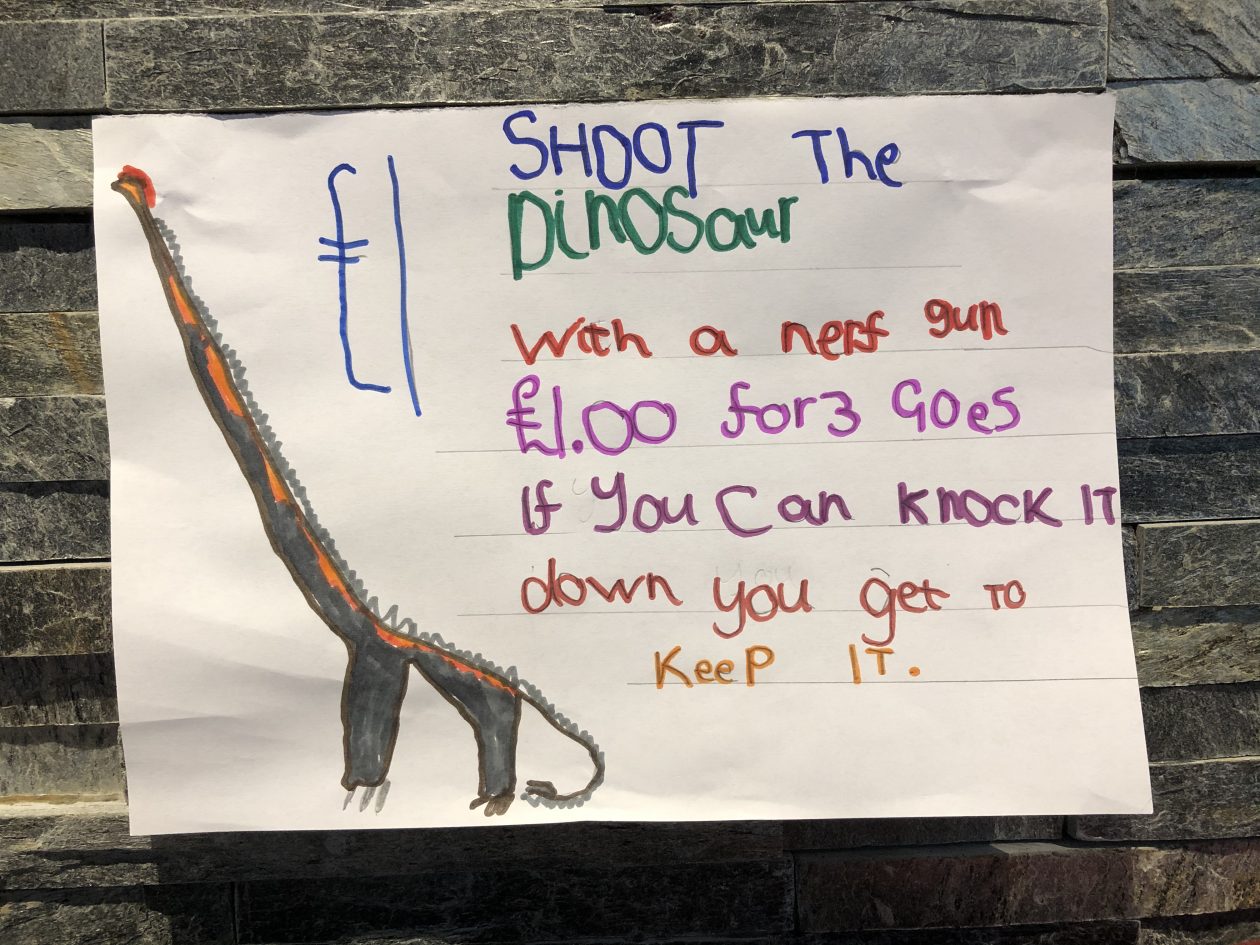 £1
SHOOT The
Dinosaur
With a nerf gun
£1.00 for 3 Goes
If You Can knock IT
down you get to
Keep IT.